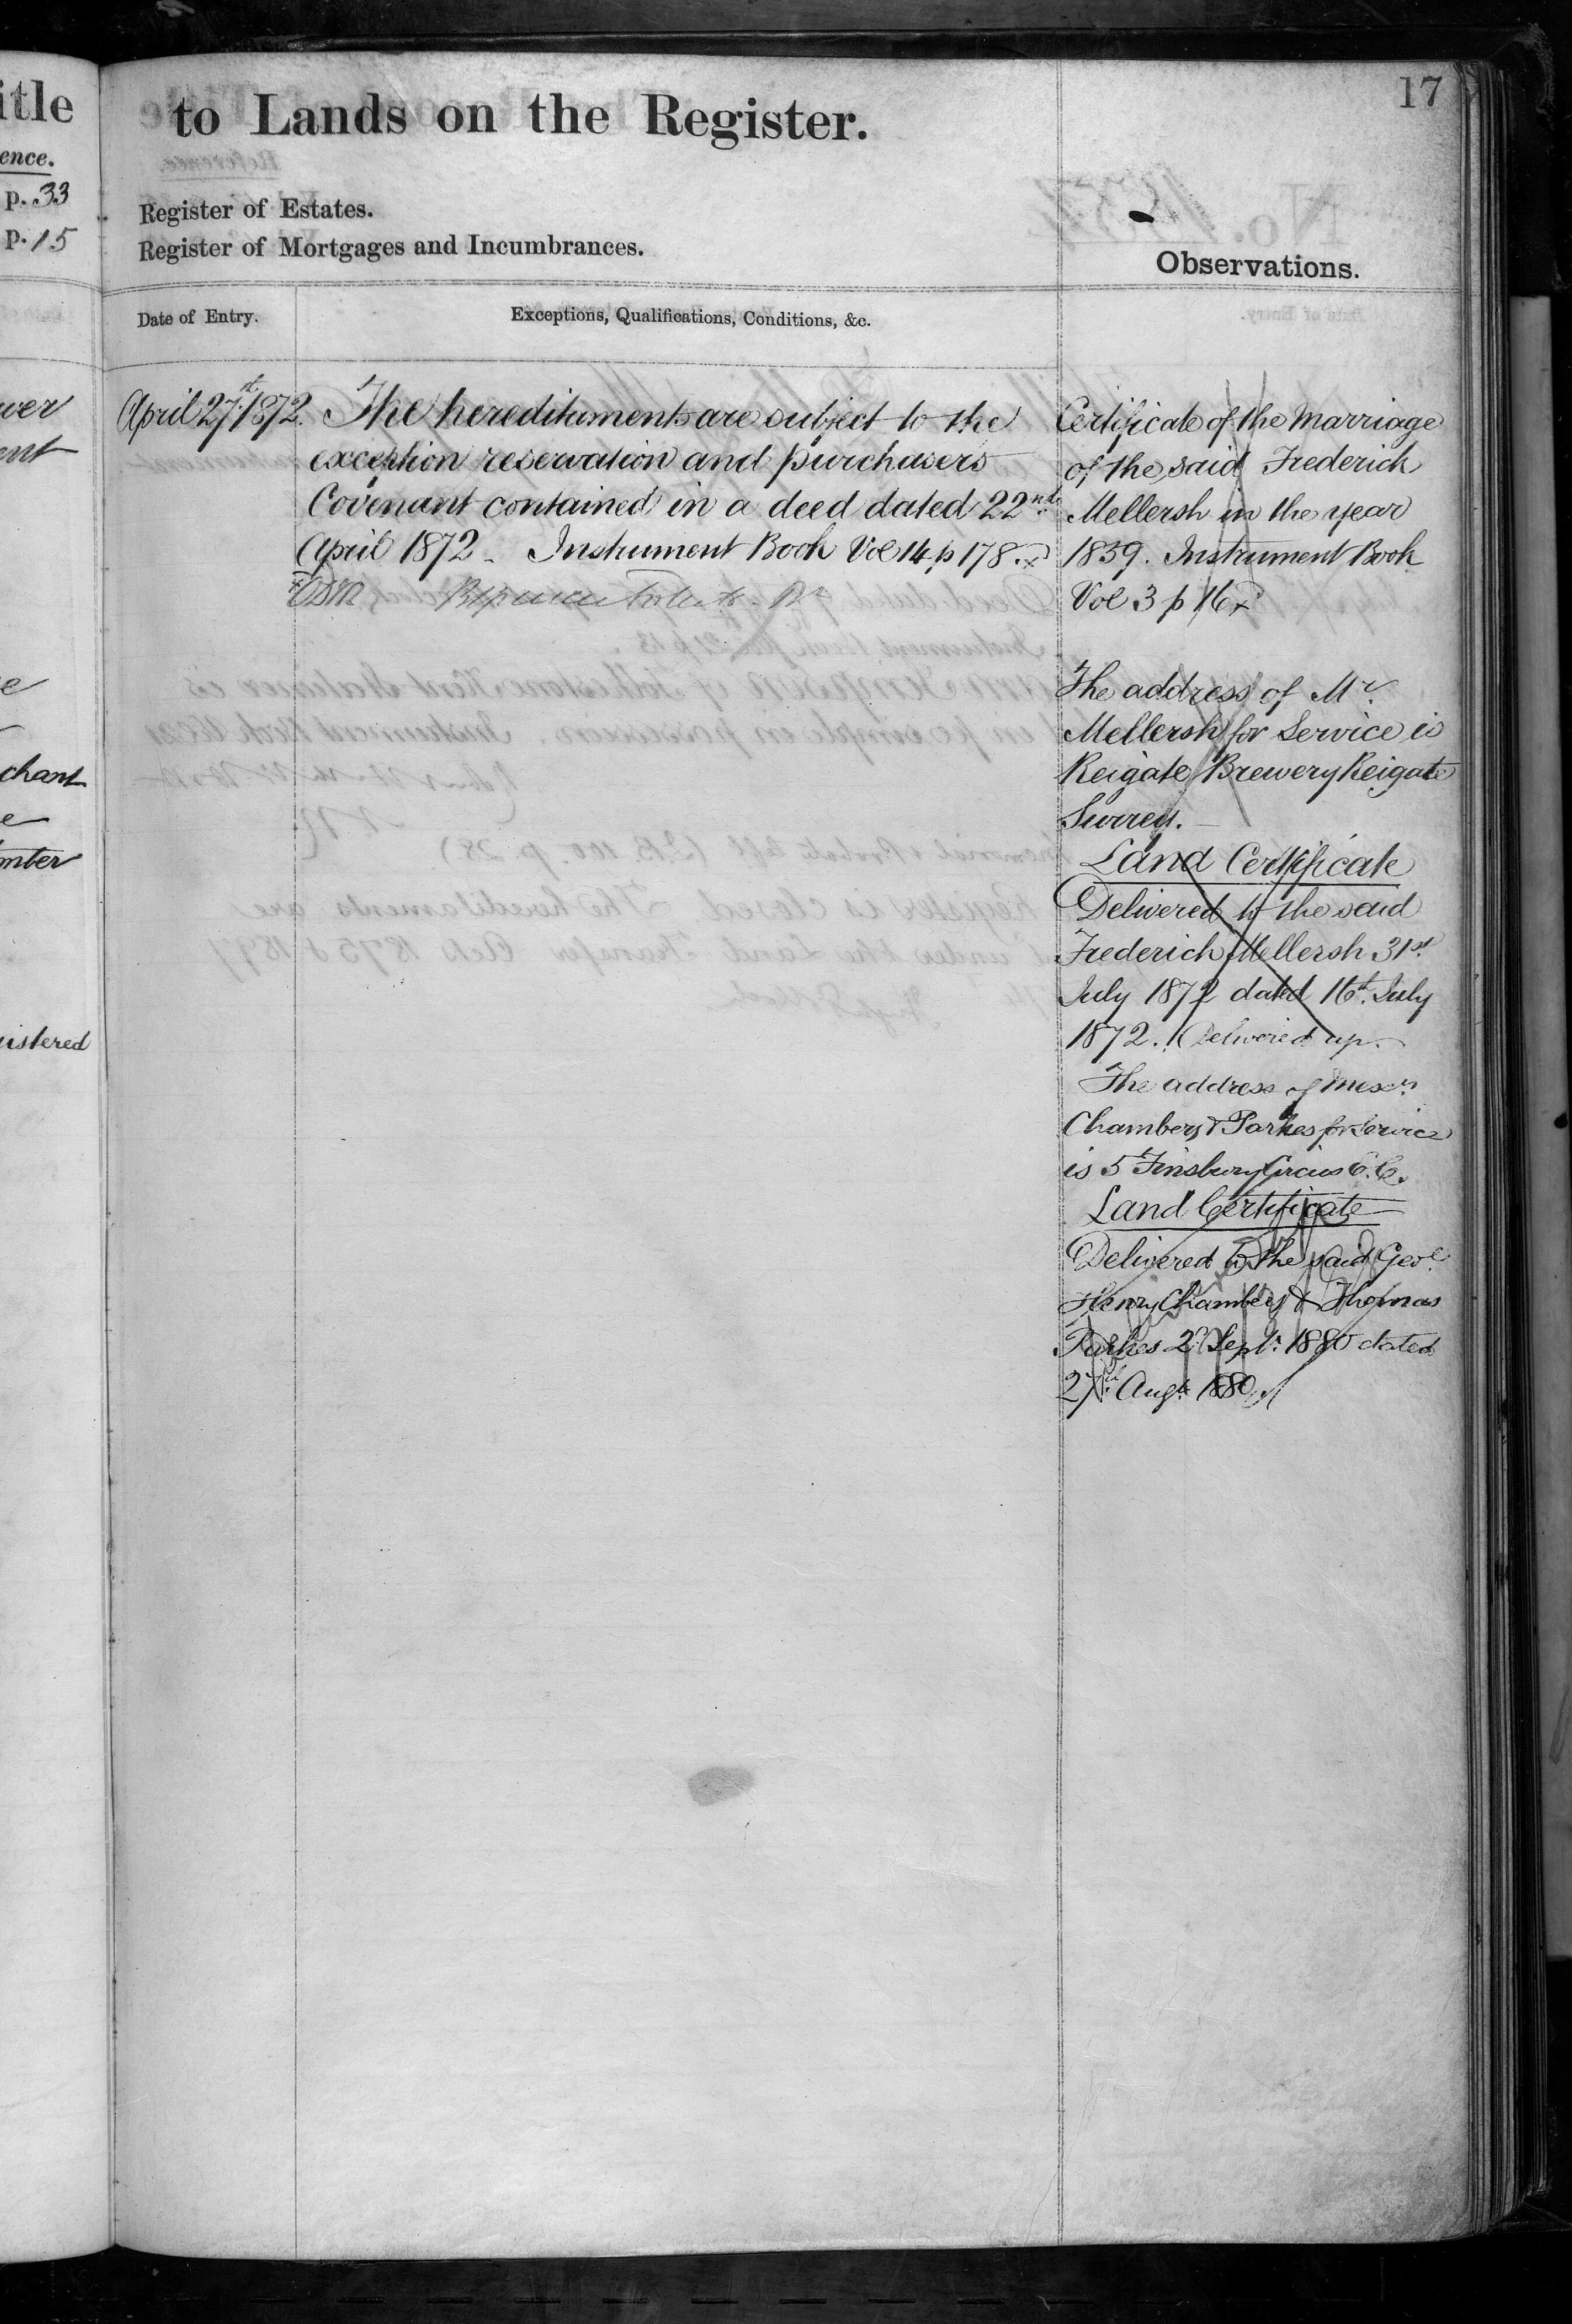 itle
ence.
p. 33
p. 15
wer
ent
e
chant
e
mter
istered
17
to Lands on the Register.
Register of Estates.
Register of Mortgages and Incumbrances.
Observations.
Date of Entry.
Exceptions, Qualifications, Conditions, &c.
April 27th 1872.
The hereditaments are subject to the
exception reservation and purchasers
Covenant contained in a deed dated 22nd
April 1872 - Instrument Book Vol 14 p 178.
Certificate of the Marriage
of the said Frederick
Mellersh in the year
1859. Instrument Book
Vol 3 p 16
The address of Mr.
Mellersh for Service is
Reigate Brewery Reigate
Surrey.
Land Certificate
Delivered to the said
Frederick Mellersh 31st.
July 1872 dated 16th. July
1872. Delivered up.
The address of Messrs.
Chambers & Parkes for Service
is 5 Finsbury Circus E.C.
Land Certificate
Delivered to the said Geoe.
Henry Chambers & Thomas
Parkes 2d Sept. 1880 dated
27th. Augt. 1880